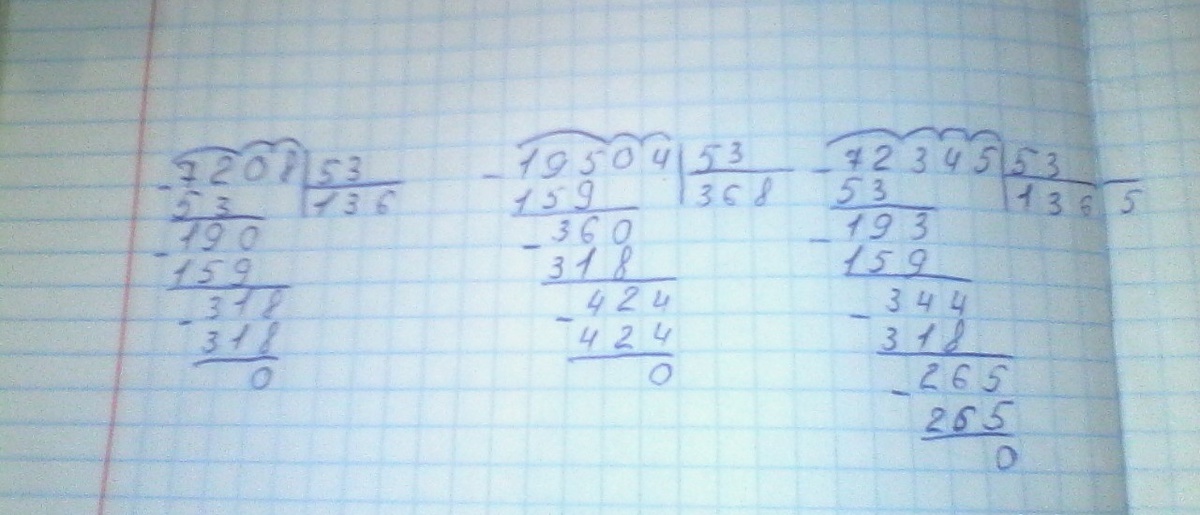 7208 53
- 53 136
190
- 159
318
- 318
0
19504 53
- 159 368
360
- 318
424
- 424
0
72345 53
- 53 1365
193
- 159
344
- 318
265
- 265
0